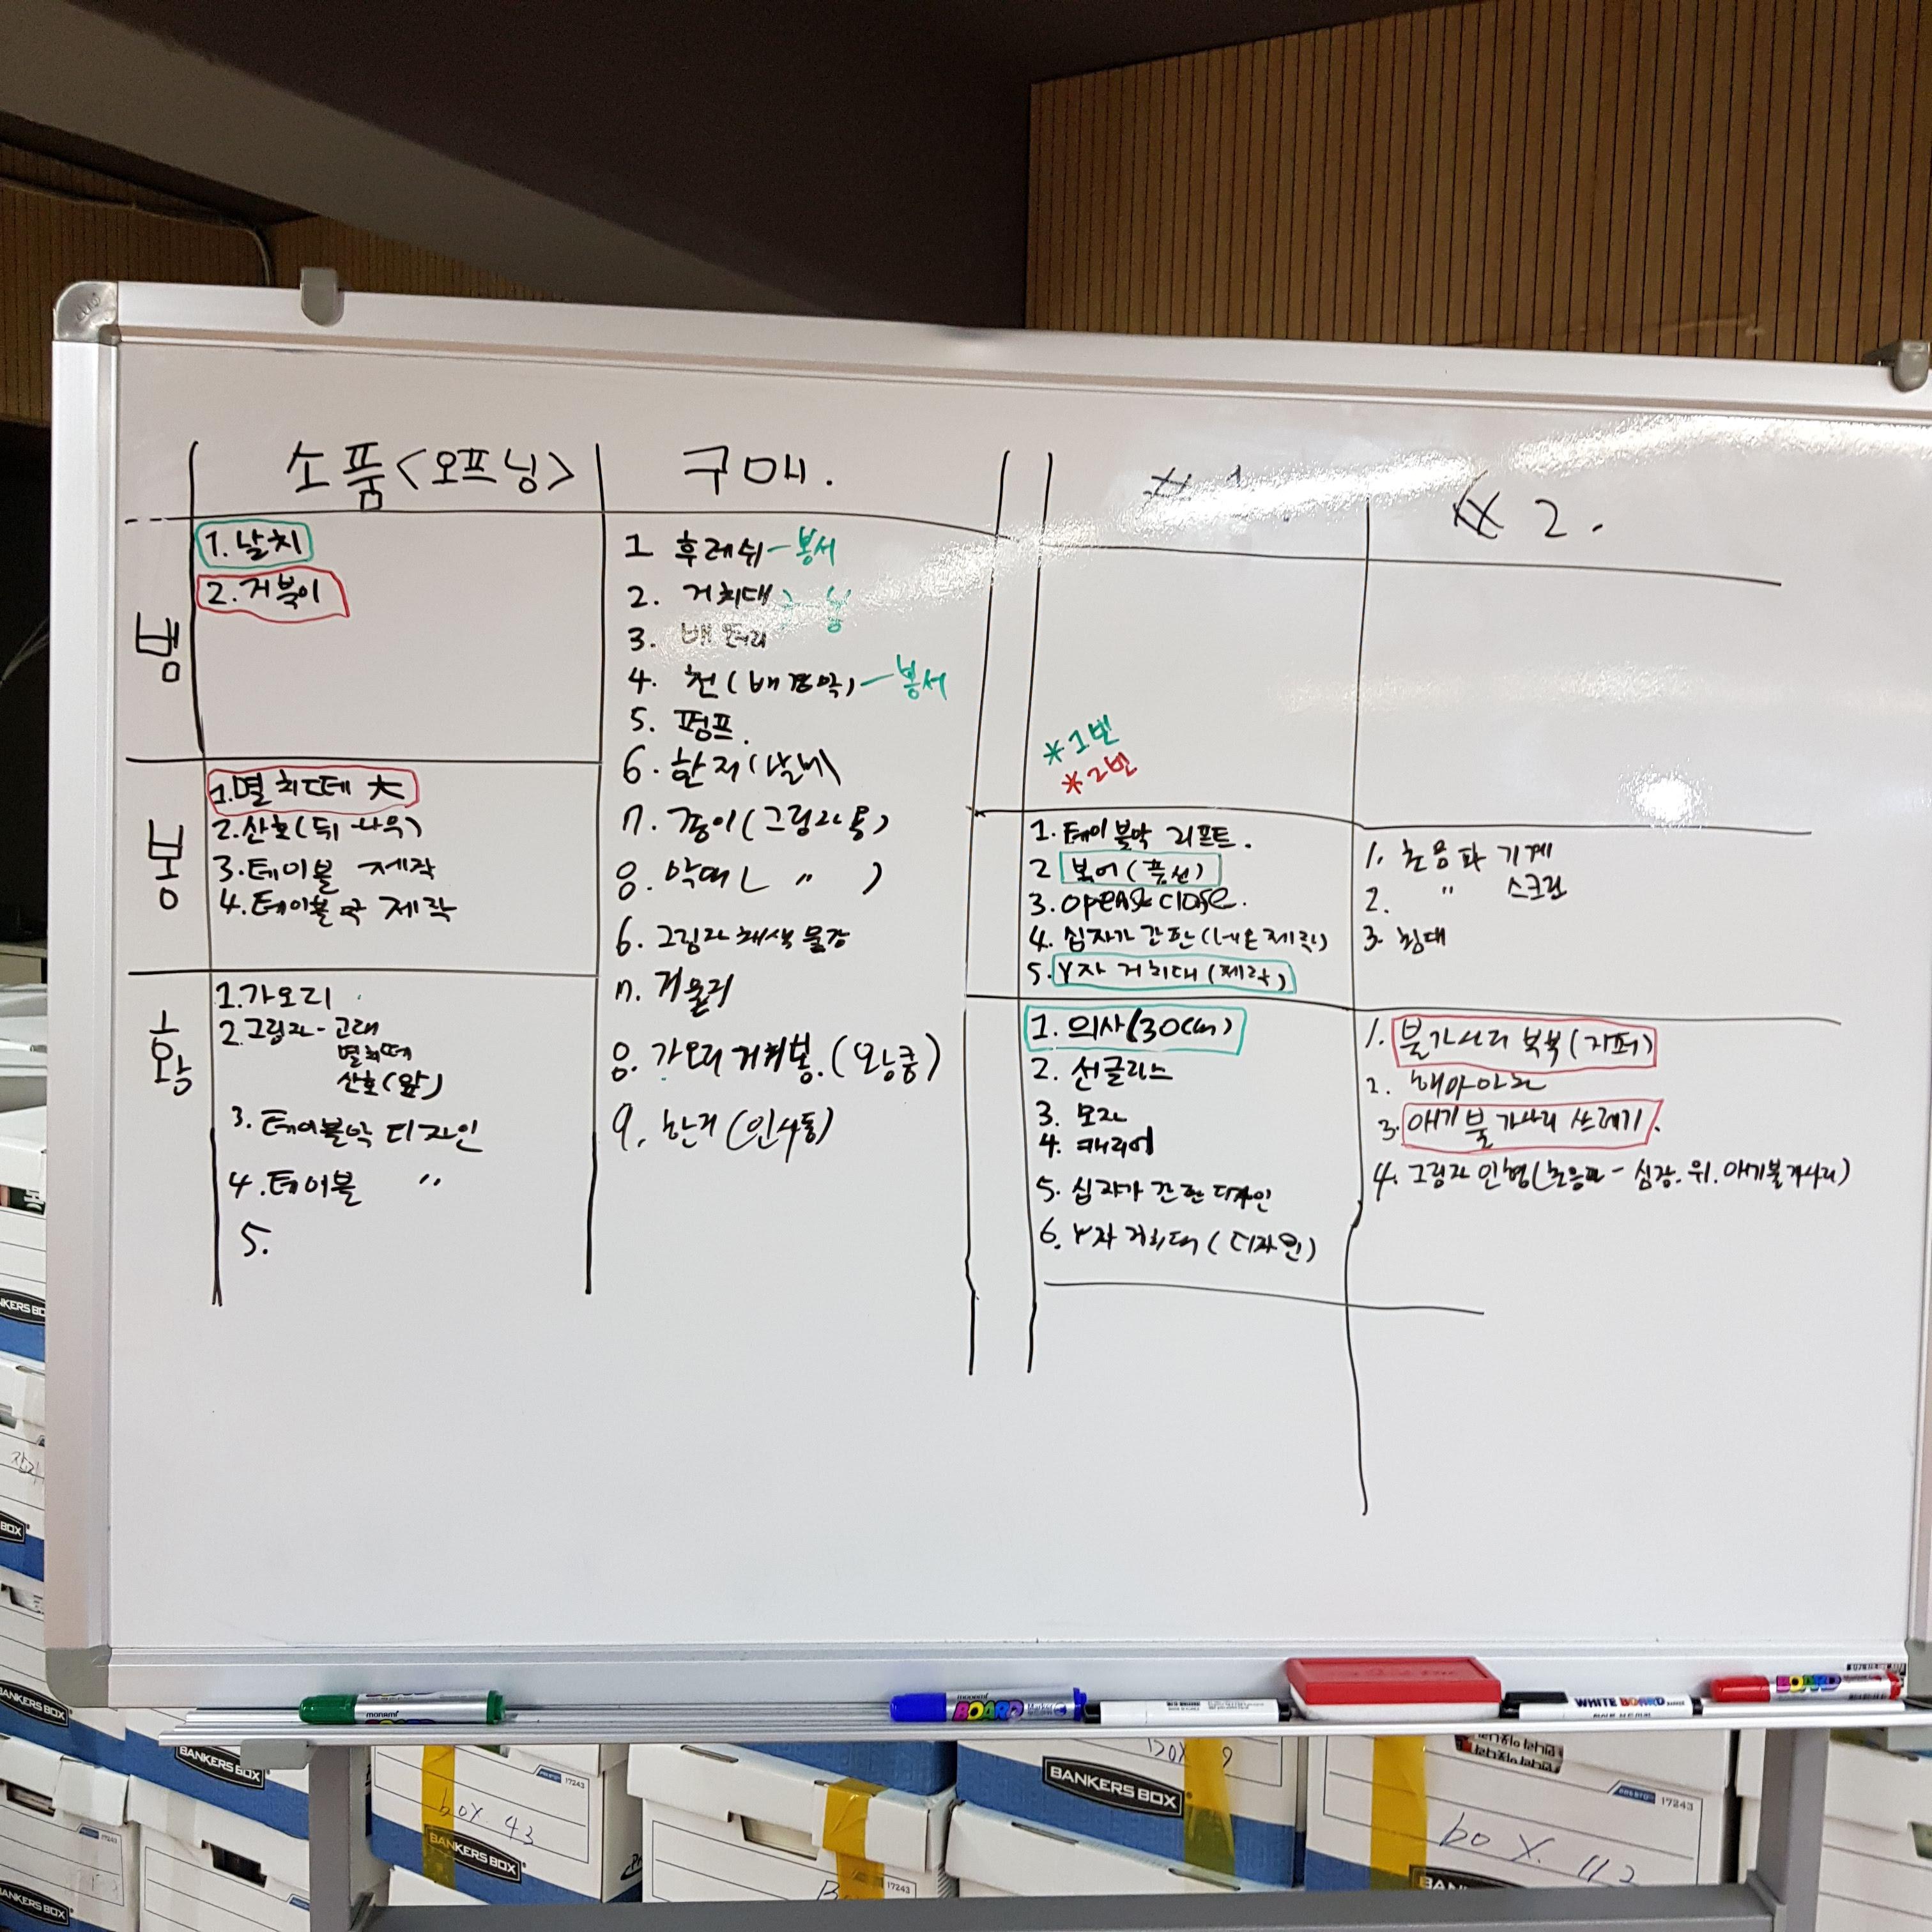 소품<오프닝>
구매.
# 1.
# 2.
뱅
1. 날치
2. 거북이
봉
1. 멸치떼 大
2. 산호(뒤
3. 테이블 제작
4. 테이블막 제작
황
1. 가오리
2. 그림자 - 고래
멸치떼
산호(앞)
3. 테이블막 디자인
4. 테이블 〃
5.
1 후레쉬 - 봉서
2. 거치대 > 봉
3. 배터리
4. 천(배경막) - 봉서
5. 펌프.
6. 한지(날치)
7. 종이(그림자용)
8. ( 〃 )
6. 그림자 해색 물감
7. 거울지
8. 가오리 거치봉.(왕쿵)
9. 한지(인사동)
*1번
*2번
1. 테이블막 리프트.
2 복어(풍선)
3. open & close.
4. 십자가 간판(네온제작)
5. Y자 거치대(제작)
1. 초음파 기계
2. 〃 스크린
3. 침대
1. 의사(30cm)
2. 선글라스
3. 모자
4. 캐리어
5. 십자가 간판 디자인
6. Y자 거치대(디자인)
1. 불가사리 복부(지퍼)
2.
3. 애기불가사리 쓰레기.
4. 그림자 인형(초음파 - 심장. 위. 아기불가사리)
monami
monami BOARD Marker
WHITE BOARD MARKER
BOARD
BANKERS BOX
BANKERS BOX
BANKERS BOX
17243
box 43
BANKERS BOX
17243
BANKERS BOX
17243
box. 112